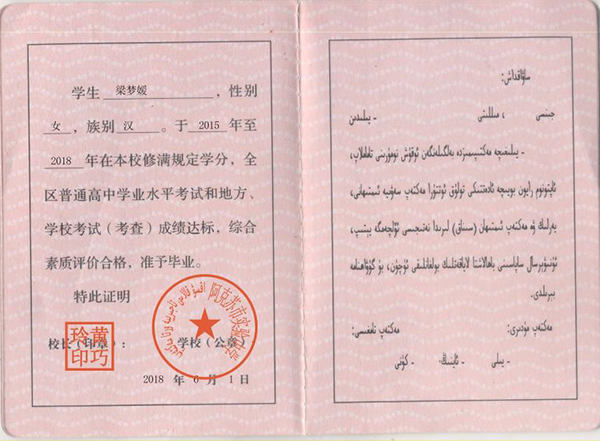 学生 梁梦媛 ，性别
女 ，族别 汉 。于 2015 年至
2018 年在本校修满规定学分，全
区普通高中学业水平考试和地方、
学校考试（考查）成绩达标，综合
素质评价合格，准予毕业。
特此证明
校长（印章）： 学校（公章）
黄巧玲印
阿克苏市实验中学
2018 年 6 月 1 日
ساۋاقداش:
جىنسى ، مىللىتى - يىلىدىن
- يىلىغىچە مەكتىپىمىزدە بەلگىلەنگەن ئوقۇش نومۇرىنى تاماملاپ،
ئاپتونوم رايون بويىچە ئادەتتىكى تولۇق ئوتتۇرا مەكتەپ سەۋىيە ئىمتىھانى،
يەرلىك ۋە مەكتەپ ئىمتىھان (سىناق) لىرىدا نەتىجىسى ئۆلچەمگە يېتىپ،
ئۇنىۋېرسال ساپاسىنى باھالاشتا لاياقەتلىك بولغانلىقى ئۈچۈن، بۇ گۇۋاھنامە
بېرىلدى.
مەكتەپ مۇدىرى: مەكتەپ تامغىسى:
- يىلى - ئاينىڭ - كۈنى